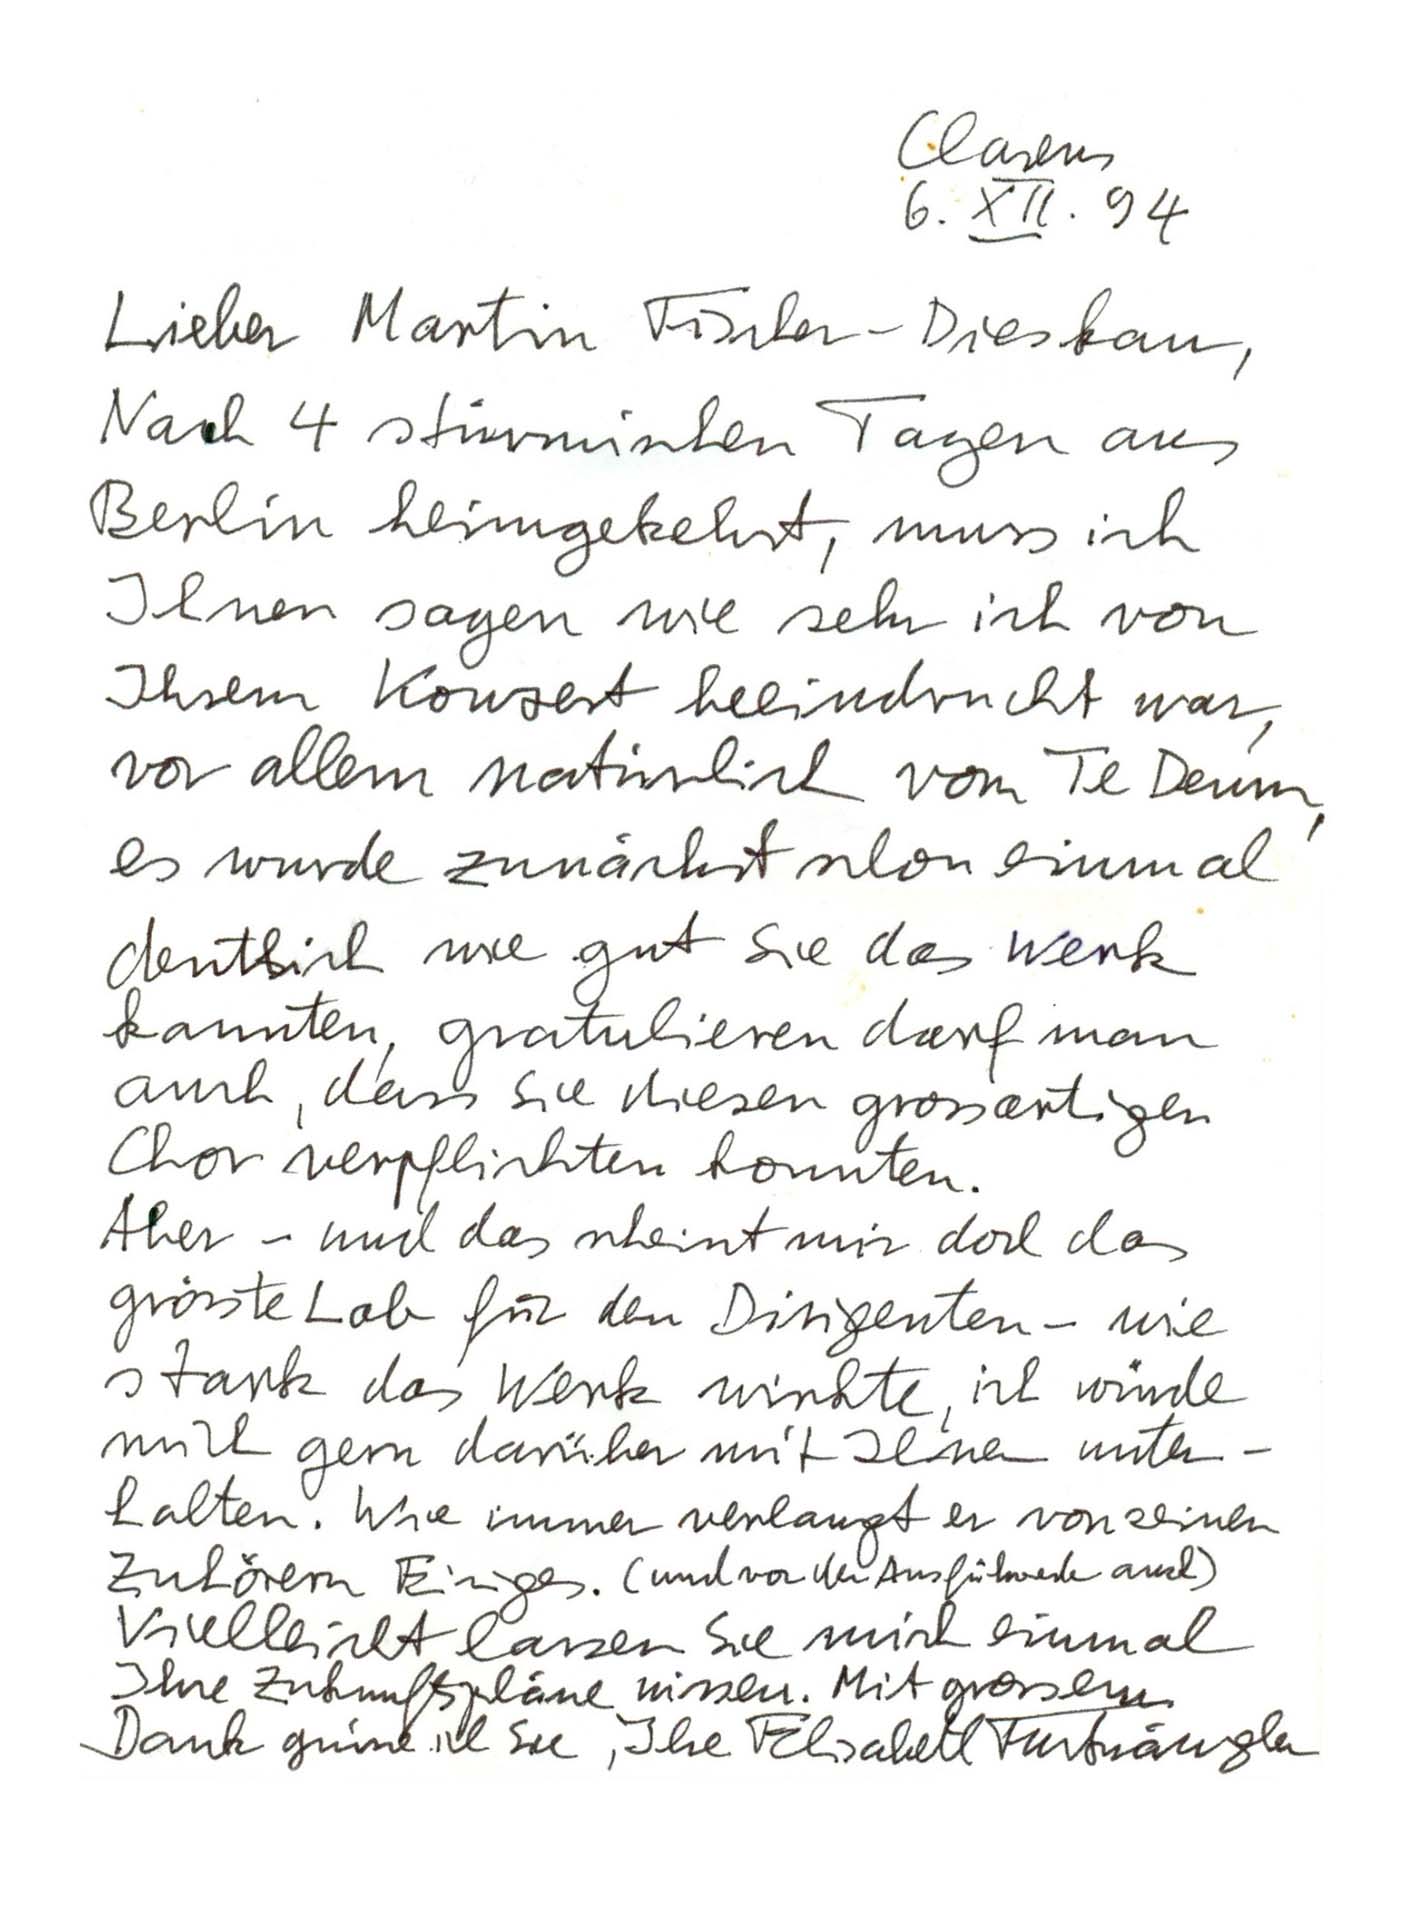 Clarens
6. XII. 94
Lieber Martin Fischer-Dieskau,
Nach 4 stürmischen Tagen aus
Berlin heimgekehrt, muss ich
Ihnen sagen wie sehr ich von
Ihrem Konzert beeindruckt war,
vor allem natürlich vom Te Deum,
es wurde zunächst schon einmal
deutlich wie gut Sie das Werk
kannten, gratulieren darf man
auch, dass Sie diesen grossartigen
Chor verpflichten konnten.
Aber – und das scheint mir doch das
grösste Lob für den Dirigenten – wie
stark das Werk wirkte, ich würde
mich gern darüber mit Ihnen unter-
halten. Wie immer verlangt er von seinen
Zuhörern Einiges. (und von den Ausführende auch)
Vielleicht lassen Sie mich einmal
Ihre Zukunftspläne wissen. Mit grossem
Dank grüsse ich Sie, Ihre Elisabeth Furtwängler